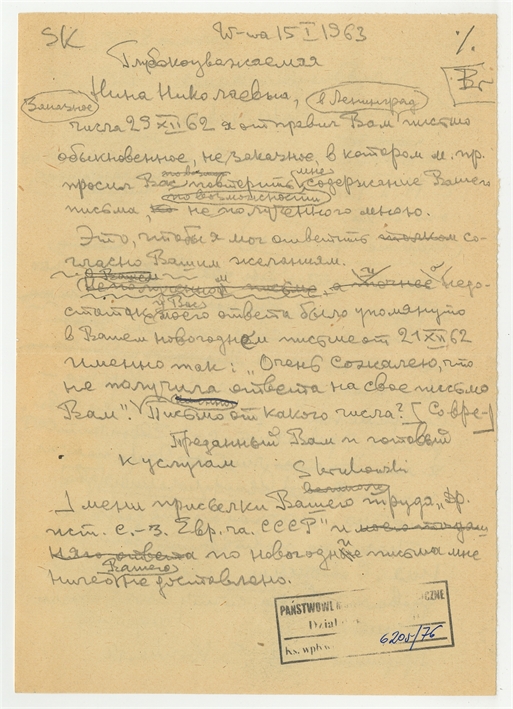 SK W-wa 15 I 1963 ./.
Глубокоуважаемая
Нина Николаевна, в Ленинград Br
Заказное
числа 29 XII 62 я отправил Вам письмо
обыкновенное, не заказное, в котором м. пр.
просил Вас повторить мне содержание Вашего
по возможности
письма, не полученного мною.
Это, чтобы я мог ответить со-
гласно Вашим желаниям.
в Вашем
недо-
у Вас
статок моего ответа было упомянуто
в Вашем новогоднем письме от 21 XII 62
именно так: „Очень сожалею, что
не получила ответа на свое письмо
Вам" Письмо от какого числа?
Преданный Вам и готовый
к услугам
Skrukowski
присылки Вашего труда „Др.
ист. С.-З. Евр. ча. СССР" и
ответа по новогодн письма мне
Вашего
ничего не доставлено.
PAŃSTWOWE
Dział
Ks. wpływu 6205/76